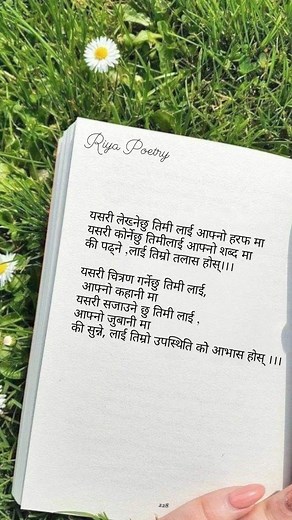 Riya Poetry
यसरी लेख्नेछु तिमी लाई आफ्नो हरफ मा
यसरी कोर्नेछु तिमीलाई आफ्नो शब्द मा
की पढ्ने ,लाई तिम्रो तलास होस्।।।
यसरी चित्रण गर्नेछु तिमी लाई,
आफ्नो कहानी मा
यसरी सजाउने छु तिमी लाई ,
आफ्नो जुबानी मा
की सुन्ने, लाई तिम्रो उपस्थिति को आभास होस् ।।।
228